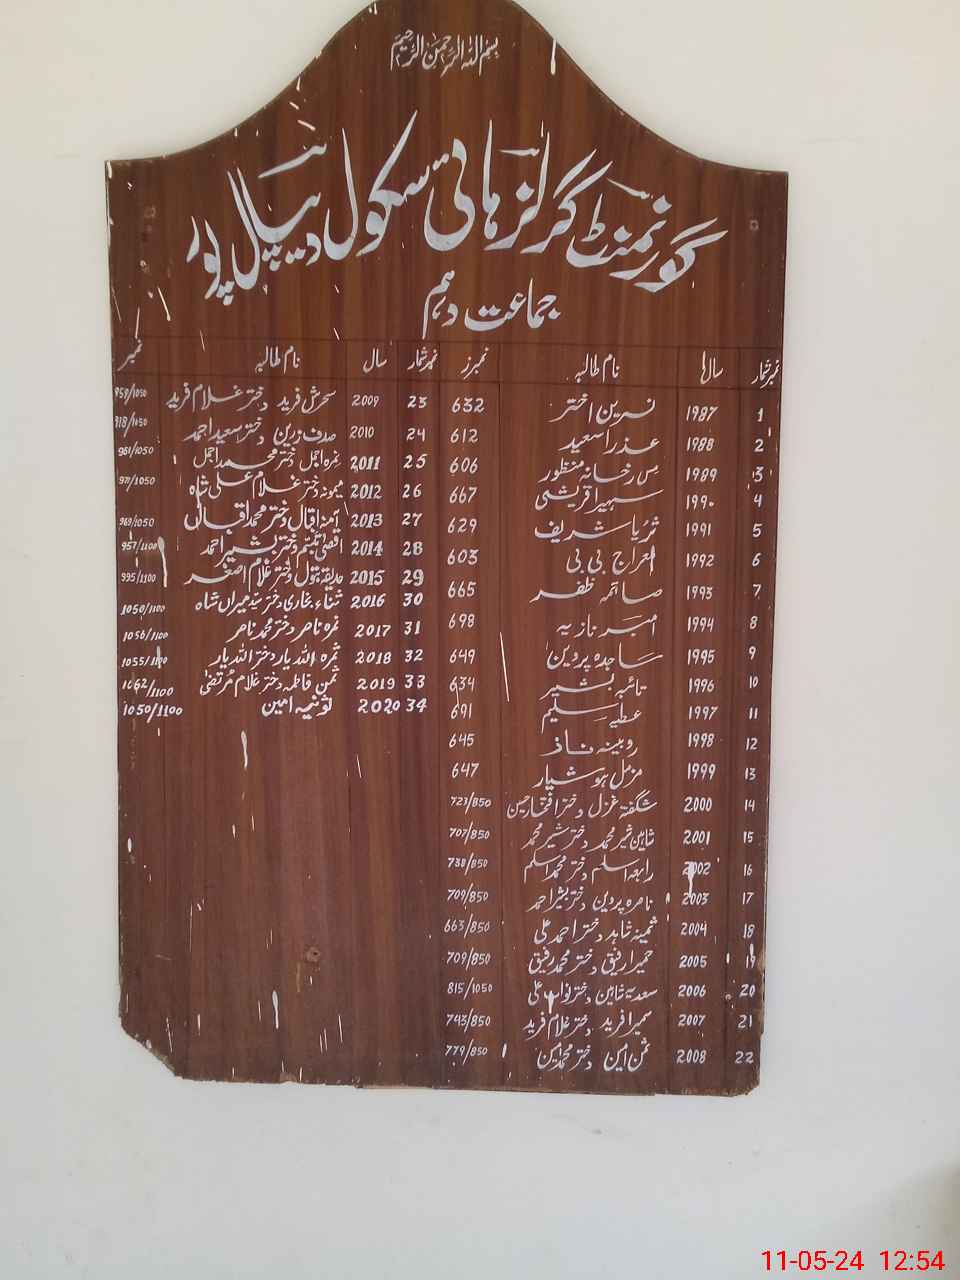 بسم اللہ الرحمن الرحیم
گورنمنٹ گرلز ہائی سکول دیپال پور
جماعت دہم
نمبر شمار سال نام طالبہ نمبرز
1 1987 نسرین اختر 632
2 1988 عذرا سعید 612
3 1989 مس رخسانہ منظور 606
4 1990 سہیرا قریشی 667
5 1991 ثریا شریف 629
6 1992 معراج بی بی 603
7 1993 صائمہ ظفر 665
8 1994 امبر نازیہ 698
9 1995 ساجدہ پروین 649
10 1996 تائبہ بشیر 634
11 1997 عطیہ سلیم 691
12 1998 روبینہ ناز 645
13 1999 مزمل ہوشیار 647
14 2000 شگفتہ غزل دختر افتخار حسین 723/850
15 2001 شاہین شیر محمد دختر شیر محمد 707/850
16 2002 رابعہ اسلم دختر محمد اسلم 738/850
17 2003 ناصرہ پروین دختر بشیر احمد 709/850
18 2004 ثمینہ شاہد دختر احمد علی 663/850
19 2005 حمیرا رفیق دختر محمد رفیق 709/850
20 2006 سعدیہ شاہین دختر نواب علی 815/1050
21 2007 سمیرا فرید دختر غلام فرید 743/850
22 2008 ثمن امین دختر محمد امین 779/850
نمبر شمار سال نام طالبہ نمبر
23 2009 سحرش فرید دختر غلام فرید 959/1050
24 2010 صدف زرین دختر سعید احمد 918/1050
25 2011 نمرہ اجمل دختر محمد اجمل 981/1050
26 2012 میمونہ دختر غلام علی شاہ 971/1050
27 2013 آمنہ اقبال دختر محمد اقبال 969/1050
28 2014 اقصیٰ تبسم دختر بشیر احمد 957/1100
29 2015 صدیقہ بتول دختر غلام اصغر 995/1100
30 2016 ثناء بخاری دختر سید میراں شاہ 1050/1100
31 2017 نمرہ ناصر دختر محمد ناصر 1056/1100
32 2018 ثمرہ اللہ یار دختر اللہ یار 1055/1100
33 2019 ثمن فاطمہ دختر غلام مرتضیٰ 1062/1100
34 2020 ثونیہ امین 1050/1100
11-05-24 12:54